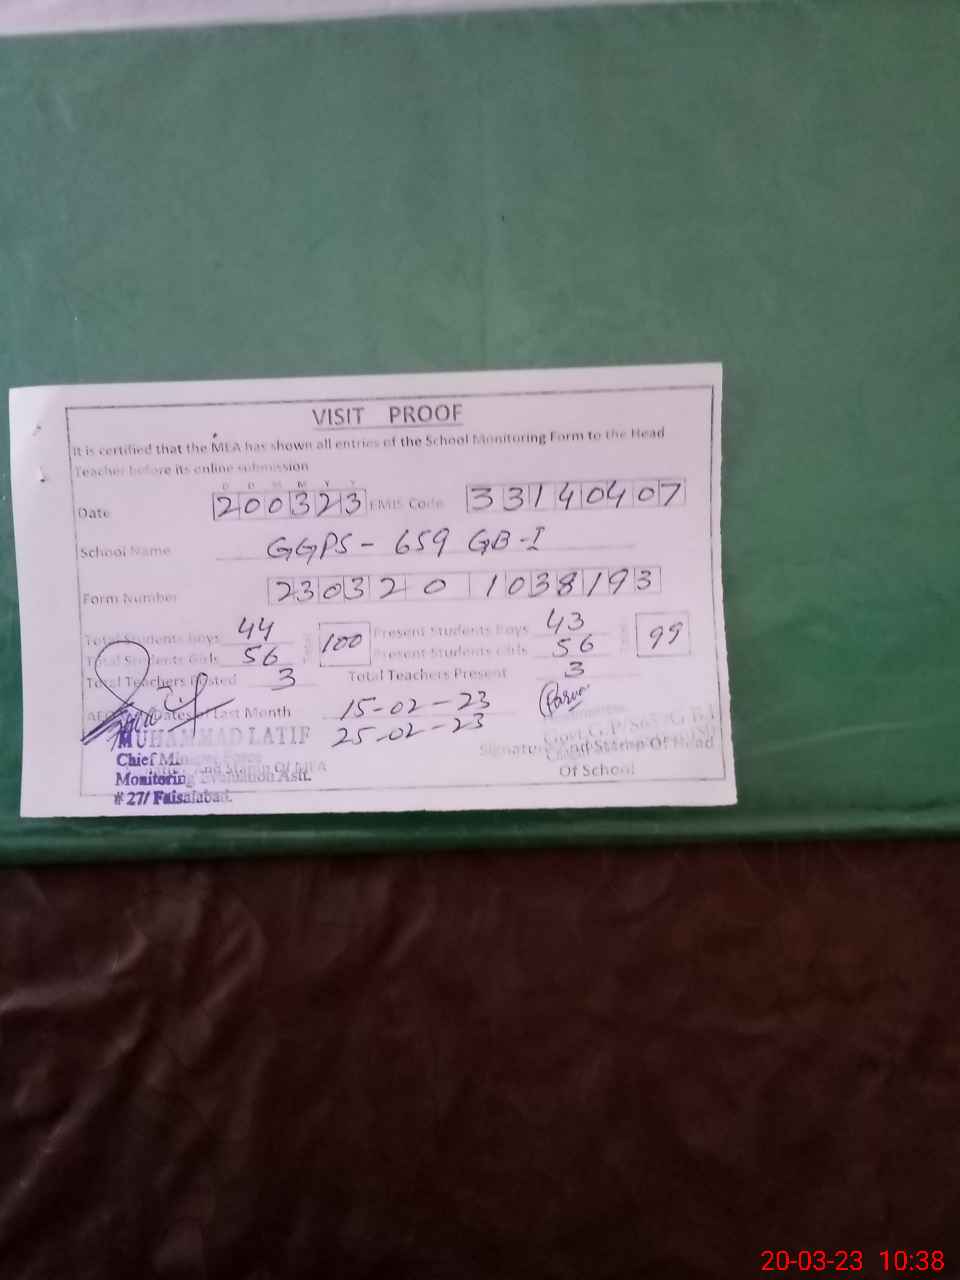 VISIT PROOF
It is certified that the MEA has shown all entries of the School Monitoring Form to the Head
Teacher before its online submission
D D M M Y Y
Date 200323 EMIS Code 33140407
School Name GGPS - 659 GB-I
Form Number 230320 1038193
Total Students Boys 44 Total 100 Present Students Boys 43 Total 99
Total Students Girls 56 Present Students Girls 56
Total Teachers Posted 3 Total Teachers Present 3
Dates Last Month 15-02-23
25-02-23
MUHAMMAD LATIF
Chief
Monitoring Evaluation Astt.
# 27/ Faisalabad.
And Stamp Of MEA
Signature And Stamp Of Head
Of School
20-03-23 10:38